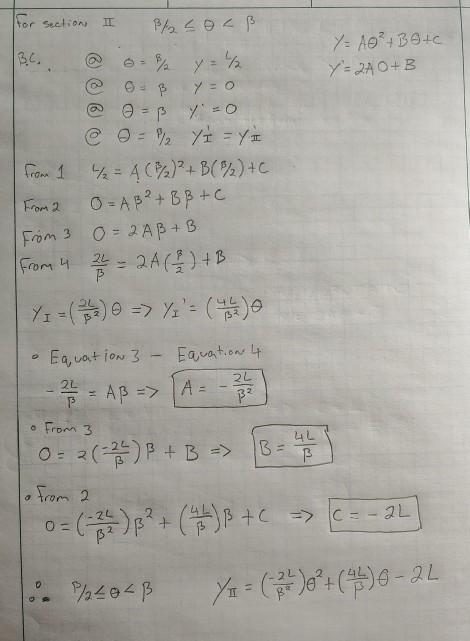 For section II β/2 ≤ θ < β
y = Aθ² + Bθ + C
y' = 2Aθ + B
B.C. @ θ = β/2 y = L/2
@ θ = β y = 0
@ θ = β y' = 0
@ θ = β/2 yI' = yII'
From 1 L/2 = A(β/2)² + B(β/2) + C
From 2 0 = Aβ² + Bβ + C
From 3 0 = 2Aβ + B
From 4 2L/β = 2A(β/2) + B
yI = (2L/β²)θ => yI' = (4L/β²)θ
• Equation 3 – Equation 4
-2L/β = Aβ => A = -2L/β²
• From 3
0 = 2(-2L/β)β + B => B = 4L/β
• From 2
0 = (-2L/β²)β² + (4L/β)β + C => C = -2L
∴ β/2 ≤ θ < β yII = (-2L/β²)θ² + (4L/β)θ - 2L